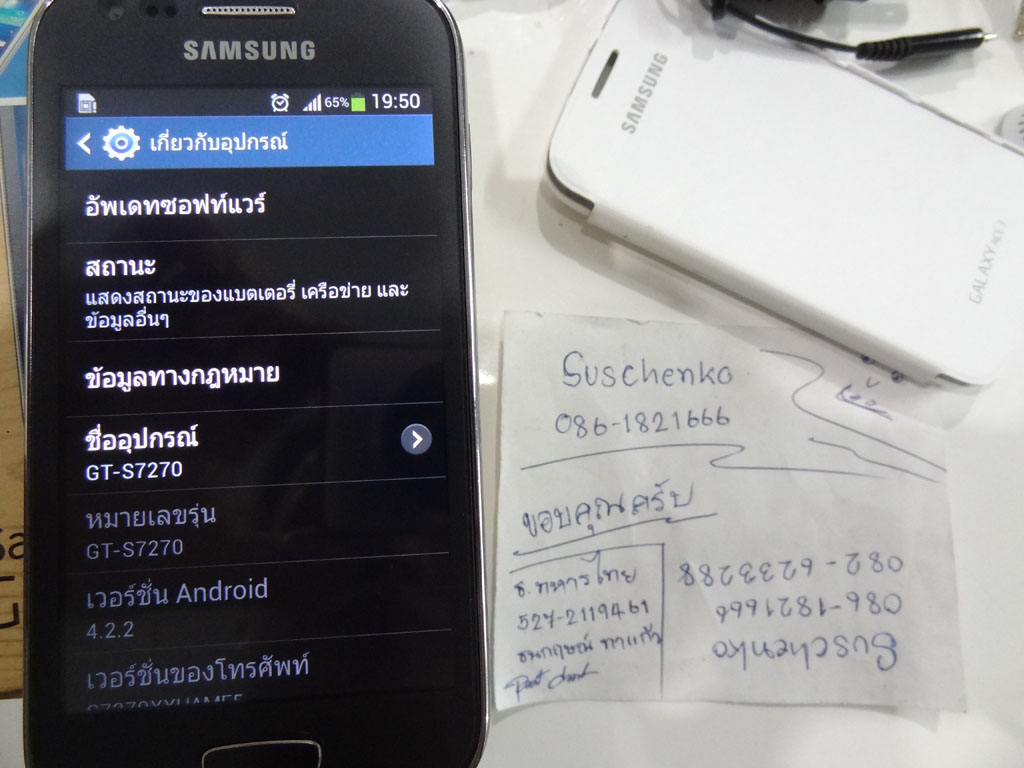 SAMSUNG
65% 19:50
เกี่ยวกับอุปกรณ์
อัพเดทซอฟท์แวร์
สถานะ
แสดงสถานะของแบตเตอรี่ เครือข่าย และ
ข้อมูลอื่นๆ
ข้อมูลทางกฎหมาย
ชื่ออุปกรณ์
GT-S7270
หมายเลขรุ่น
GT-S7270
เวอร์ชั่น Android
4.2.2
เวอร์ชั่นของโทรศัพท์
SAMSUNG
GALAXY ACE 3
Suschenko
086-1821666
ขอบคุณครับ
ธ.ทหารไทย
527-2119461
Suschenko
086-1821666
082-6233288